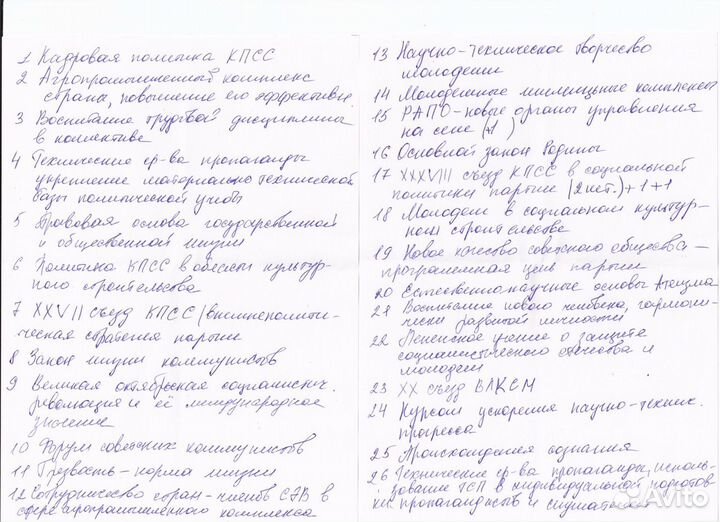 1 Кадровая политика КПСС
2 Агропромышленный комплекс
страны, повышение его эффективн.
3 Воспитание трудовой дисциплины
в коллективе
4 Технические ср-ва пропаганды
укрепление материально технической
базы политической учебы
5 Правовая основа государственной
и общественной жизни
6 Политика КПСС в области культур-
ного строительства
7 XXVII съезд КПСС/внешнеполити-
ческая стратегия партии
8 Закон жизни коммунистов
9 Великая октябрьская социалистич.
революция и её международное
значение
10 Форум советских коммунистов
11 Трезвость – норма жизни
12 Сотрудничество стран-членов СЭВ в
сфере агропромышленного комплекса
13 Научно-техническое творчество
молодежи
14 Молодежные жилищные комплексы
15 РАПО-новые органы управления
на селе (+1)
16 Основной закон Родины
17 XXXVIII съезд КПСС о социальной
политики партии (2 кст.)+1+1
18 Молодежь в социальном культур-
ном строительстве
19 Новое качество советского общества –
программная цель партии
20 Естественнонаучные основы Атеизма
21 Воспитание нового человека, гармони-
чески развитой личности
22 Ленинское учение о защите
социалистического отечества и
молодежи
23 XX съезд ВЛКСМ
24 Курсом ускорения научно-технич.
прогресса
25 Происхождения сознания
26 Технические ср-ва пропаганды, исполь-
зование ТСП в индивидуальной подготов
ки пропагандистов и слушателей
Avito